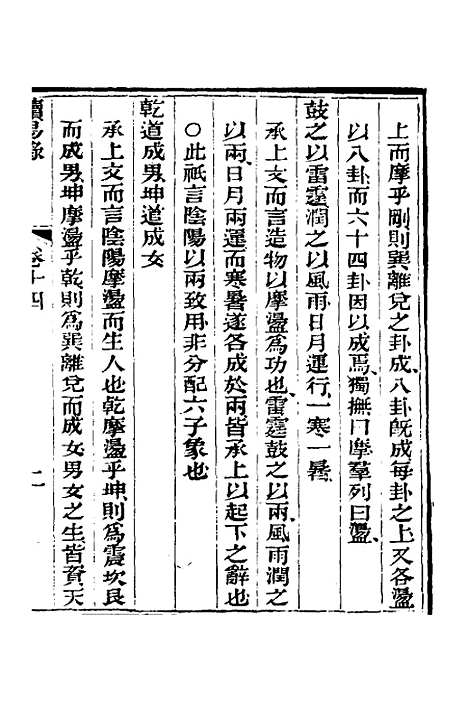 上而摩乎剛則巽離兌之卦成八卦旣成每卦之上又各盪
以八卦而六十四卦因以成焉獨撫曰摩羣列曰盪
鼓之以雷霆潤之以風雨日月運行一寒一暑
承上文而言造物以摩盪爲功也雷霆鼓之以兩風雨潤之
以兩日月兩運而寒暑遂各成於兩皆承上以起下之辭也
○此祇言陰陽以兩致用非分配六子象也
乾道成男坤道成女
承上文而言陰陽摩盪而生人也乾摩盪乎坤則爲震坎艮
而成男坤摩盪乎乾則爲巽離兌而成女男女之生皆資天
讀易錄 卷十四 二